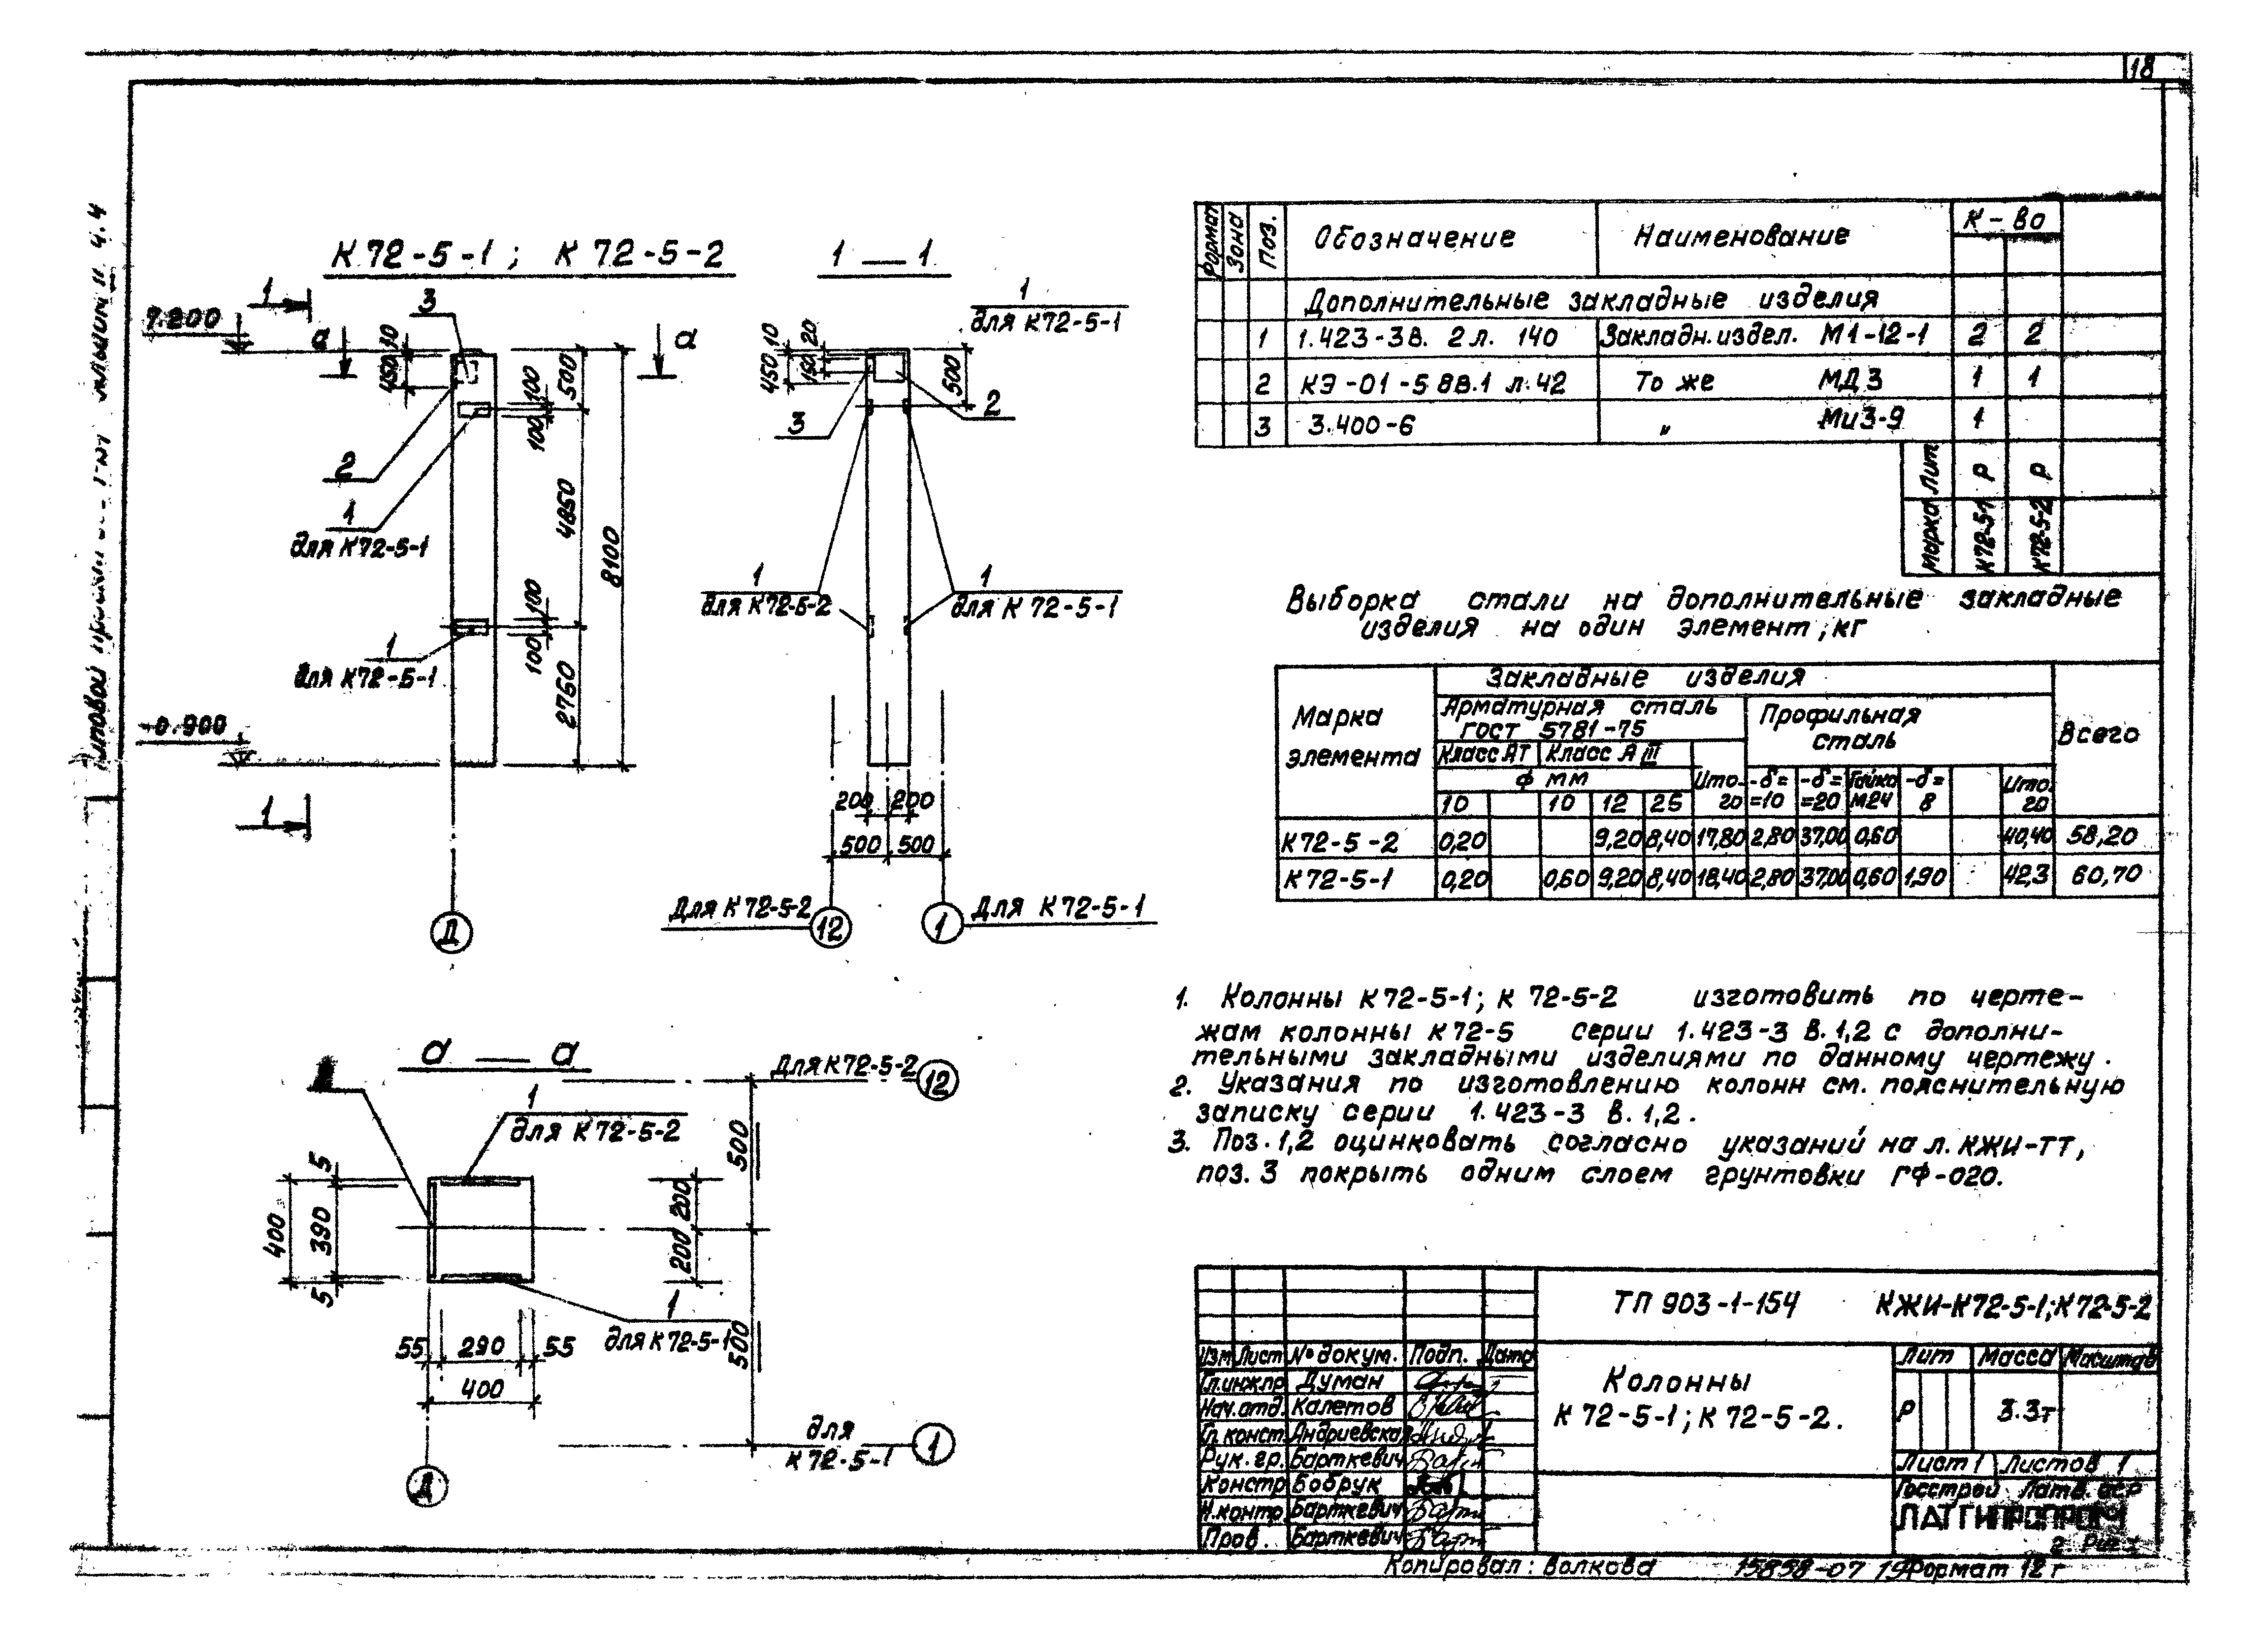 18
К 72-5-1; К 72-5-2
1 — 1
7.200
-0.900
1
3
а
а
450 10
100
500
100
2
1
для К72-5-1
4850
8100
100
100
1
для К72-5-1
2760
1
Д
1
для К72-5-1
450 10
150 20
500
3
2
1
для К72-5-2
1
для К 72-5-1
200 200
500 500
Для К72-5-2
12
1
Для К72-5-1
а — а
Для К72-5-2
12
1
для К72-5-2
5
390
400
5
200
200
500
500
1
для К72-5-1
55 290 55
400
для
К 72-5-1
1
Д
Формат Зона Поз. Обозначение Наименование К-во
Дополнительные закладные изделия
1 1.423-3В. 2 л. 140 Закладн. издел. М1-12-1 2 2
2 КЭ-01-58В.1 л.42 То же МД3 1 1
3 3.400-6 " Ми3-9 1
Лит Р Р
Марка К72-5-1 К72-5-2
Выборка стали на дополнительные закладные
изделия на один элемент, кг
Марка элемента
Закладные изделия
Всего
Арматурная сталь
ГОСТ 5781-75
Профильная
сталь
Класс АI Класс А III
Ф мм
Итого
-δ= =10 -δ= =20 Гайка М24 -δ= 8 Итого
10 10 12 25
К72-5-2 0,20 9,20 8,40 17,80 2,80 37,00 0,60 40,40 58,20
К72-5-1 0,20 0,60 9,20 8,40 18,40 2,80 37,00 0,60 1,90 42,3 60,70
1. Колонны К72-5-1; К 72-5-2 изготовить по черте-
жам колонны К72-5 серии 1.423-3 в.1,2 с дополни-
тельными закладными изделиями по данному чертежу.
2. Указания по изготовлению колонн см. пояснительную
записку серии 1.423-3 в.1,2.
3. Поз.1,2 оцинковать согласно указаний на л. КЖИ-ТТ,
поз.3 покрыть одним слоем грунтовки ГФ-020.
ТП 903-1-154 КЖИ-К72-5-1;К72-5-2
Изм Лист № докум. Подп. Дата
Гл.инж.пр Думан
Нач.отд. Калетов
Гл.конст. Андриевская
Рук.гр. Барткевич
Констр Бобрук
Н.контр. Барткевич
Пров. Барткевич
Колонны
К 72-5-1; К 72-5-2.
Лит Масса Масштаб
Р 3.3т
Лист 1 Листов 1
Госстрой Латв. ССР
ЛАТГИПРОПРОМ
г. Рига
Копировал: Волкова 15858-07 19 Формат 12г